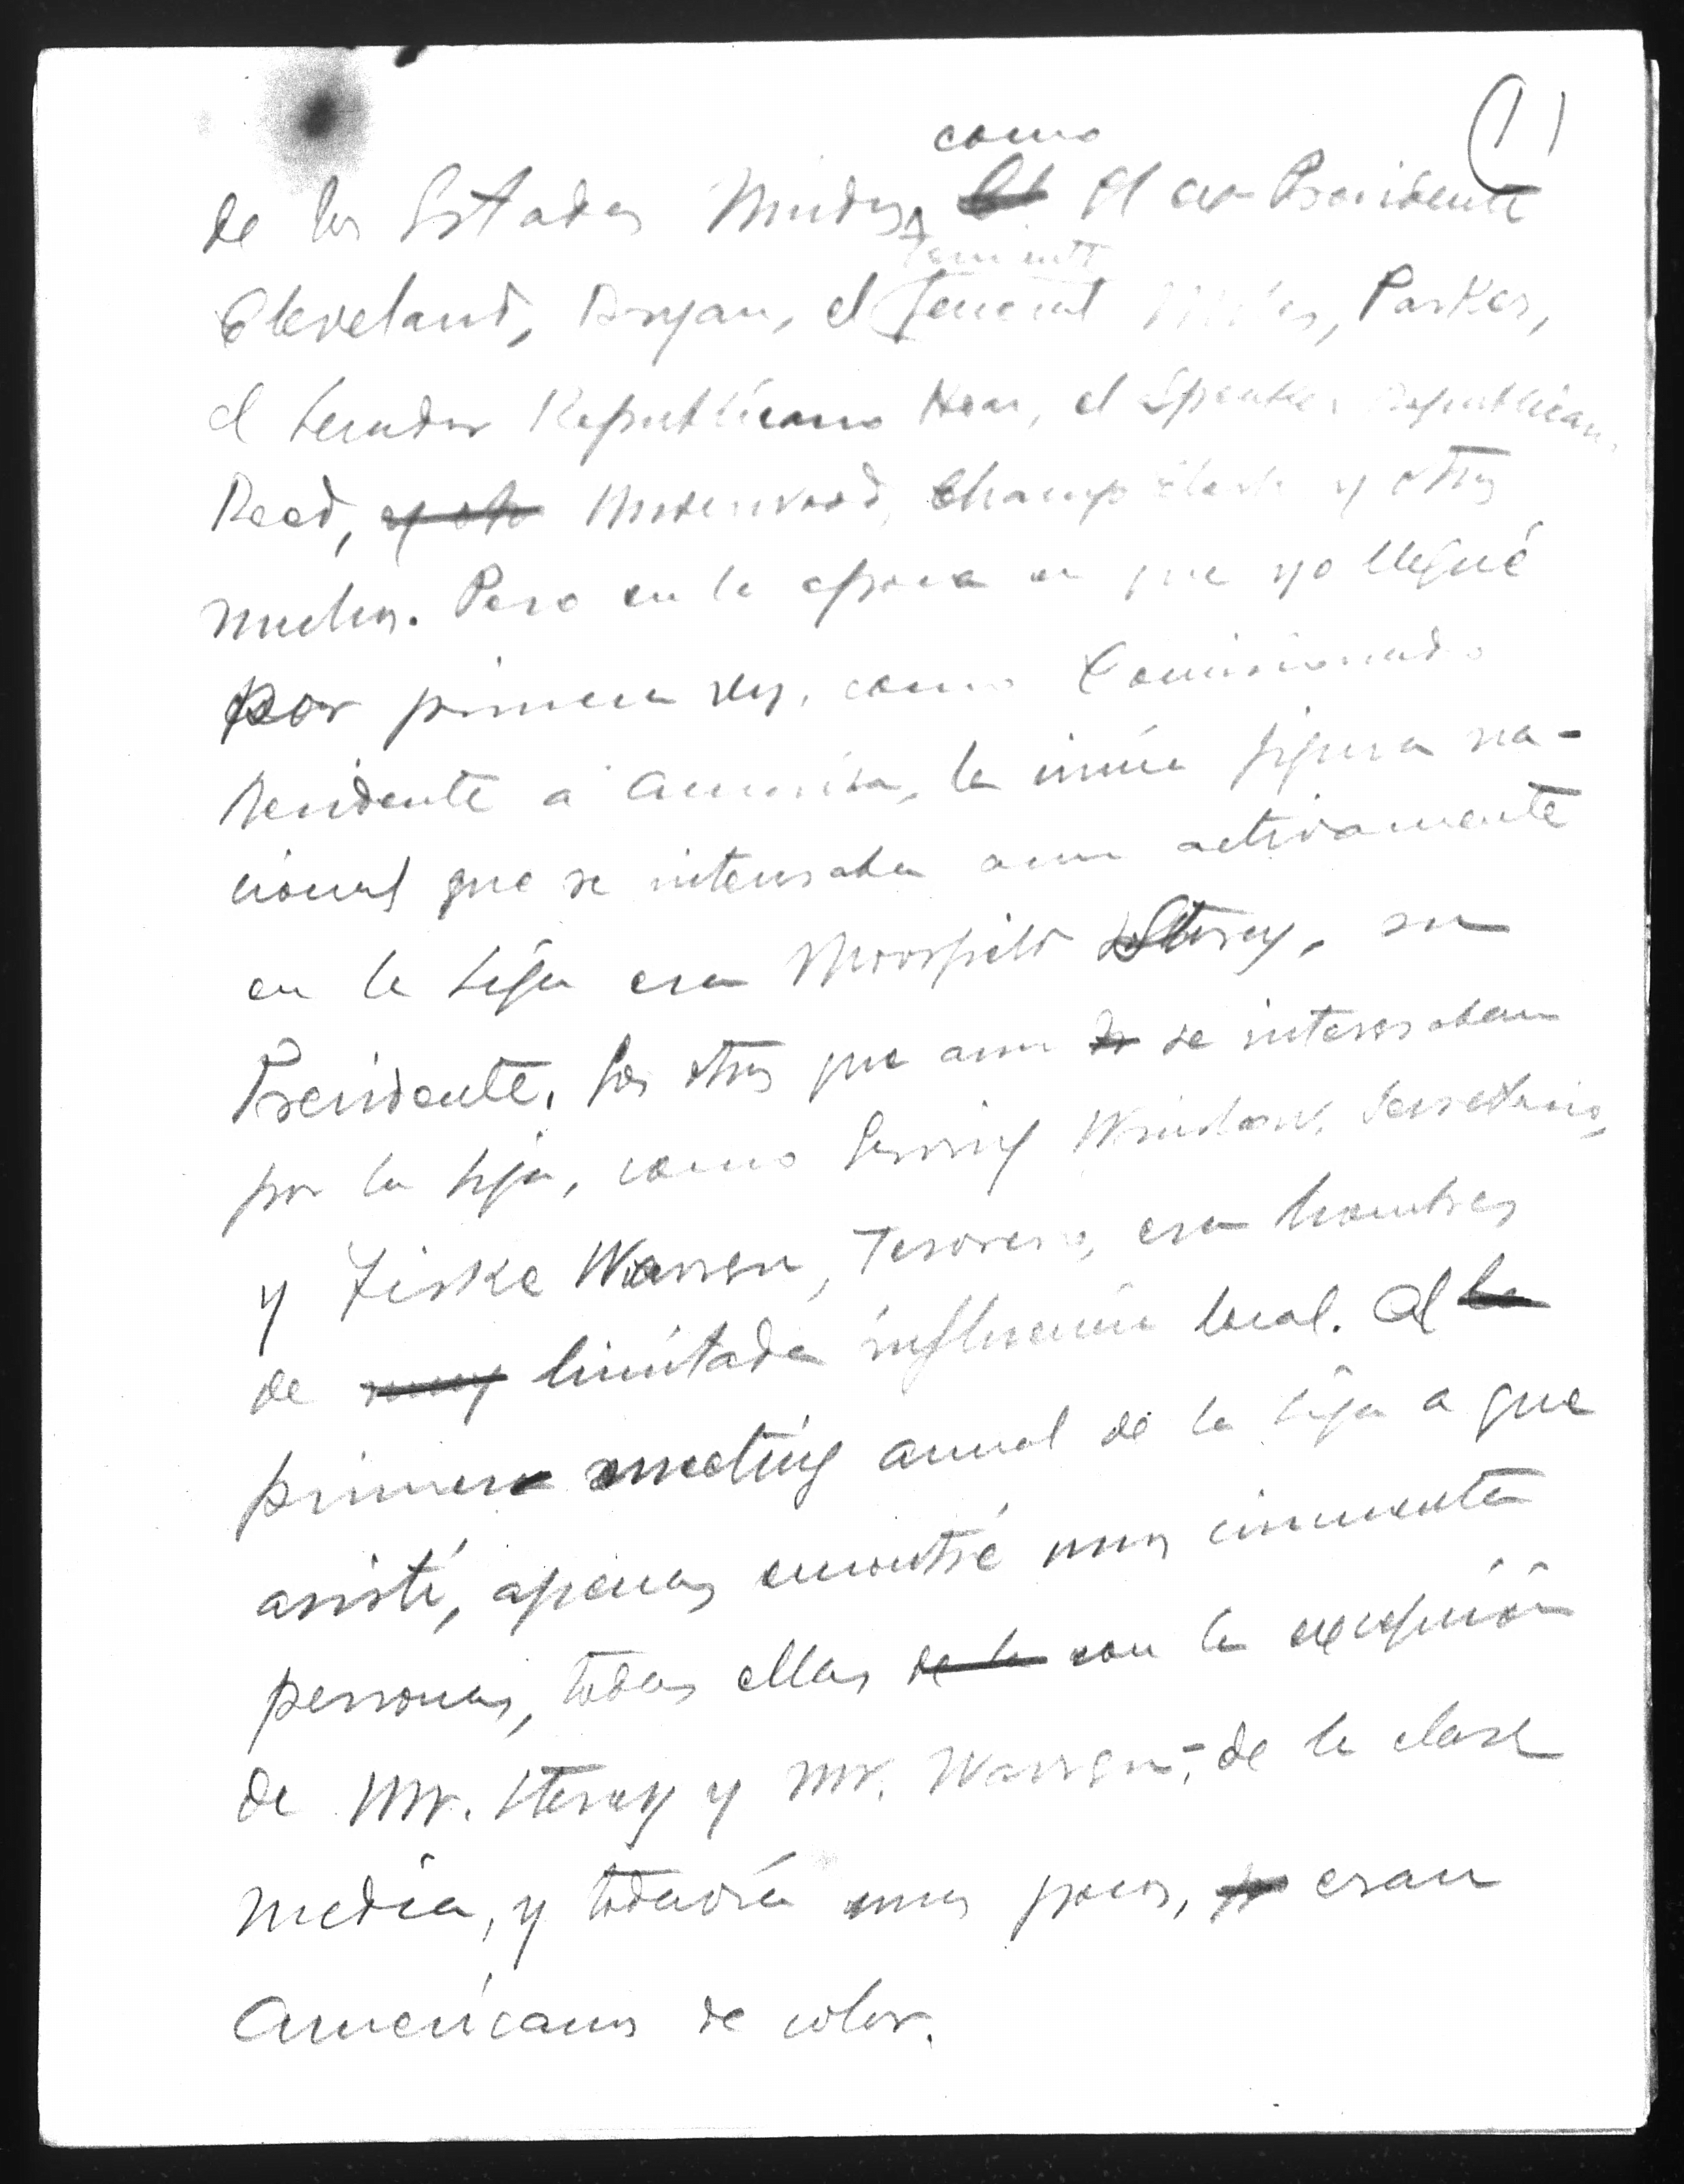 11
como
de los Estados Unidos, El El ex Presidente
Teniente
Cleveland, Bryan, el General Miles, Parker,
el Senador Republicano Hoar, el Speaker Republicano
Reed, y otr Underwood, Champ Clark y otros
muchos. Pero en la epoca en que yo llegué
por primera vez, como Comisionado
Residente a America, la única figura na-
cional que se interesaba aun activamente
en la Liga era Moorfield Storey, su
Presidente. Los otros que aun se interesaban
por la Liga, como Erving Winslow, Secretario,
y Fiske Warren, Tesorero, eran hombres
de muy limitada influencia local. Al la
primer meeting anual de la Liga a que
asistí, apenas encontré unas cincuenta
personas, todas ellas de la con la excepción
de Mr. Storey y Mr. Warren,- de la clase
media, y todavía unos pocos, eran
Americanos de color.